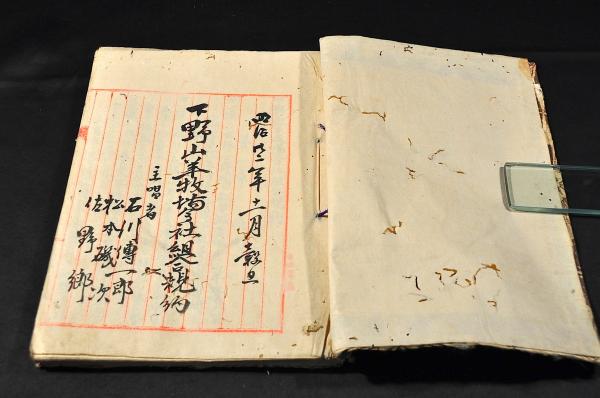 明治廿二年十一月穀旦
下野山羊牧場会社組合規約
主唱者
石川傳一郎
松本礒次
佐野郷